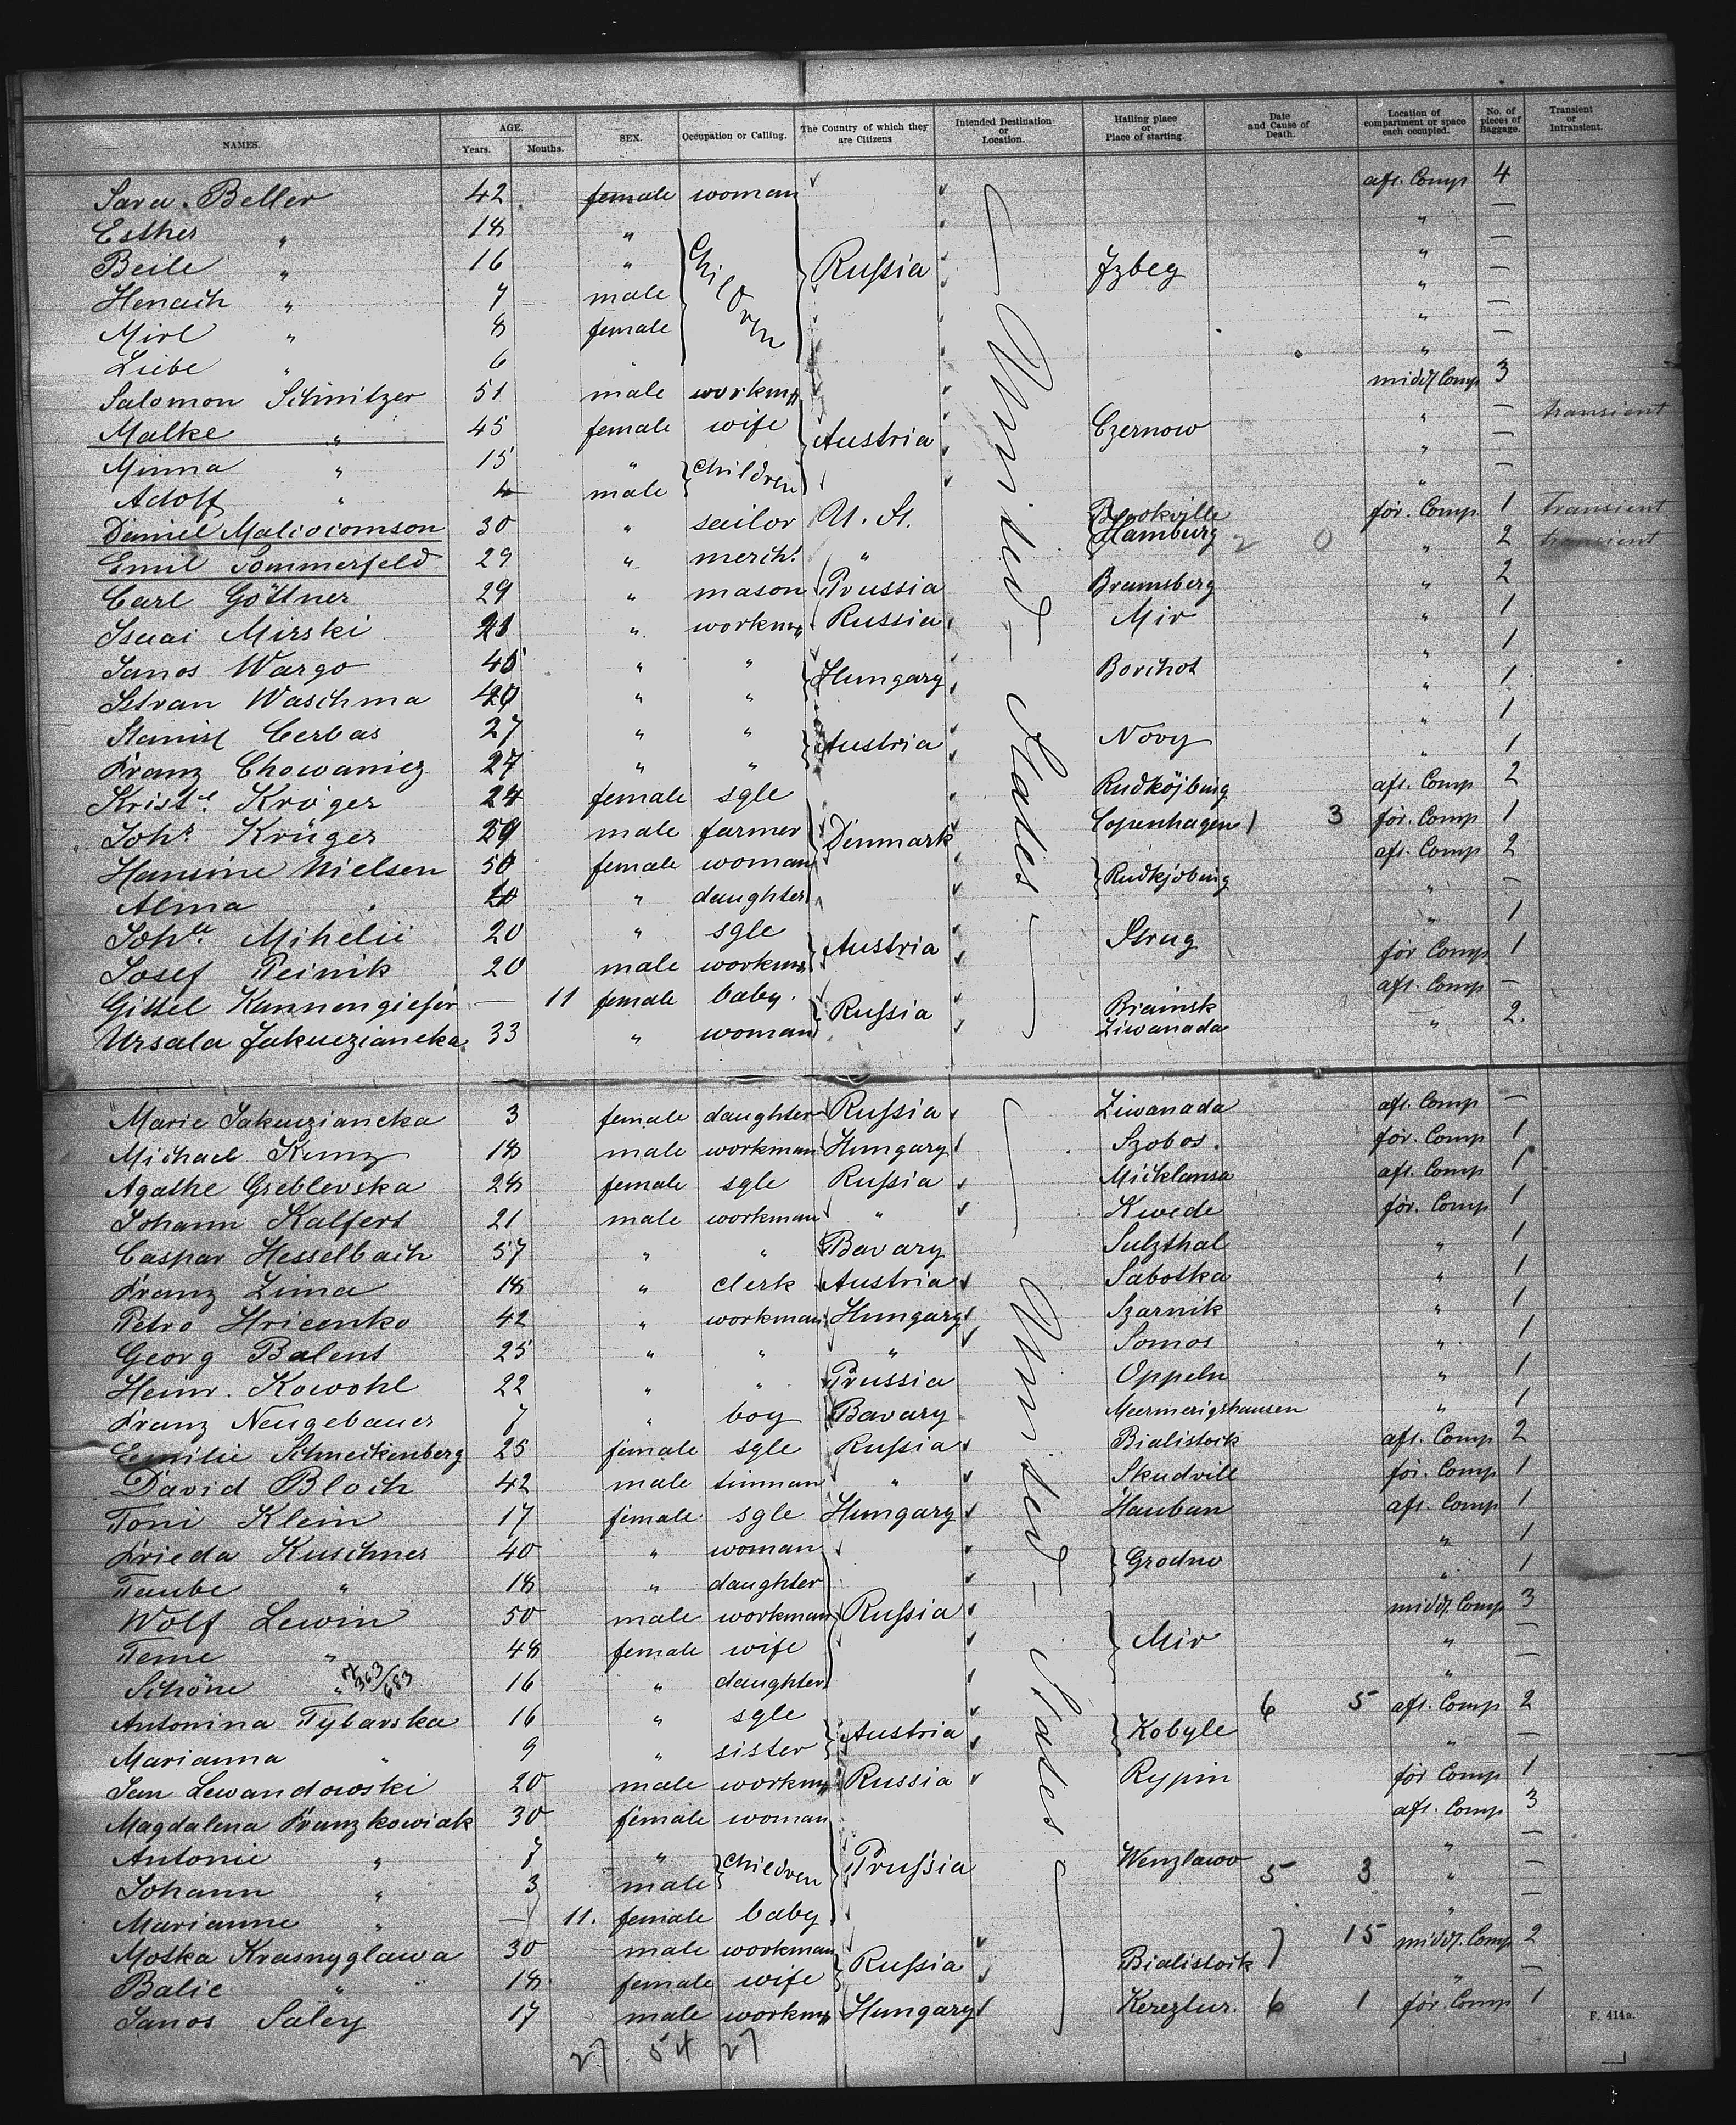 NAMES. AGE. Years. Months. SEX. Occupation or Calling. The Country of which they are Citizens Intended Destination or Location. Hailing place or Place of starting. Date and Cause of Death. Location of compartment or space each occupied. No. of pieces of Baggage. Transient or Intransient.
Sara Beller 42 female woman aft. Comp 4
Esther " 18 " " —
Beile " 16 " Children Russia Izbeg " —
Henach " 7 male " —
Mirl " 8 female " —
Liebe " 6 " " —
Salomon Schnitzer 51 male workm midd. Comp 3
Malke " 45 female wife Austria Czernow " — transient
Minna " 15 " children " —
Adolf " 4 male " —
Daniel 30 " sailor U. St. Brookville for. Comp 1 transient
Emil Sommerfeld 29 " mercht. " Hamburg 2 0 " 2 transient
Carl Göttner 29 " mason Prussia " 2
Isaai Mirski " workm Russia Mir " 1
Janos Wargo 45 " " Hungary Borchot " 1
Istvan Waschma " " " 1
Stanisl Cerbas 27 " " Austria Novy " 1
Franz Chowaniez 27 " " " 1
Krist. Kröger 24 female sgle Rudköjbing aft. Comp 2
Joh. Krüger male farmer Denmark Copenhagen 1 3 for. Comp 1
Hansine Nielsen female woman Rudkjöbing aft. Comp 2
Alma " daughter " —
Joh. Mihelic 20 " sgle Austria Strug " 1
Josef Peinik 20 male workm for Comp 1
Gittel Kannengiefer — 11 female baby Russia Briainsk aft. Comp —
Ursala Jakuzianeka 33 " woman Ziwanada " 2.
Marie Jakuzianeka 3 female daughter Russia Ziwanada aft. Comp —
Michael Kunz 18 male workman Hungary Szobos for. Comp 1
Agathe Greblevska 28 female sgle Russia Micklansa aft. Comp 1
Johann Kalfert 21 male workman " Kwede for. Comp 1
Caspar Hesselbach 57 " " Bavary Sulzthal " 1
Franz Zima 18 " clerk Austria Sabotka " 1
Petro Hricenko 42 " workman Hungary Szarnik " 1
Georg Balent 25 " " " Somos " 1
Heinr. Kowohl 22 " " Prussia Oppeln " 1
Franz Neugebauer 7 " boy Bavary " 1
Emilie Schneikenberg 25 female sgle Russia Bialistock aft. Comp 2
David Bloch 42 male tinman " Skudvill for. Comp 1
Toni Klein 17 female sgle Hungary Hauban aft. Comp 1
Frieda Kuschner 40 " woman Grodno " 1
Taube " 18 " daughter " 1
Wolf Lewin 50 male workman Russia Mir midd. Comp 3
Teme " 48 female wife " —
Schöne " 363/683 16 " daughter " —
Antonina Tybarska 16 " sgle Austria Kobyle 6 5 aft. Comp 2
Marianna " 9 " sister " —
Jan Lewandowski 20 male workm Russia Rypin for Comp 1
Magdalena Franzkowiak 30 female woman aft. Comp 3
Antonie " 7 " children Prussia Wenzlawo 5 3 " —
Johann " 3 male " —
Marianne " — 11. female baby " —
Moska Krasnyglawa 30 male workman Russia Bialistock 7 15 midd. Comp 2
Balie " 18 female wife " —
Janos Saley 17 male workm Hungary Kerezlur. 6 1 for. Comp 1
United States
United States
27 54 27
F. 414a.